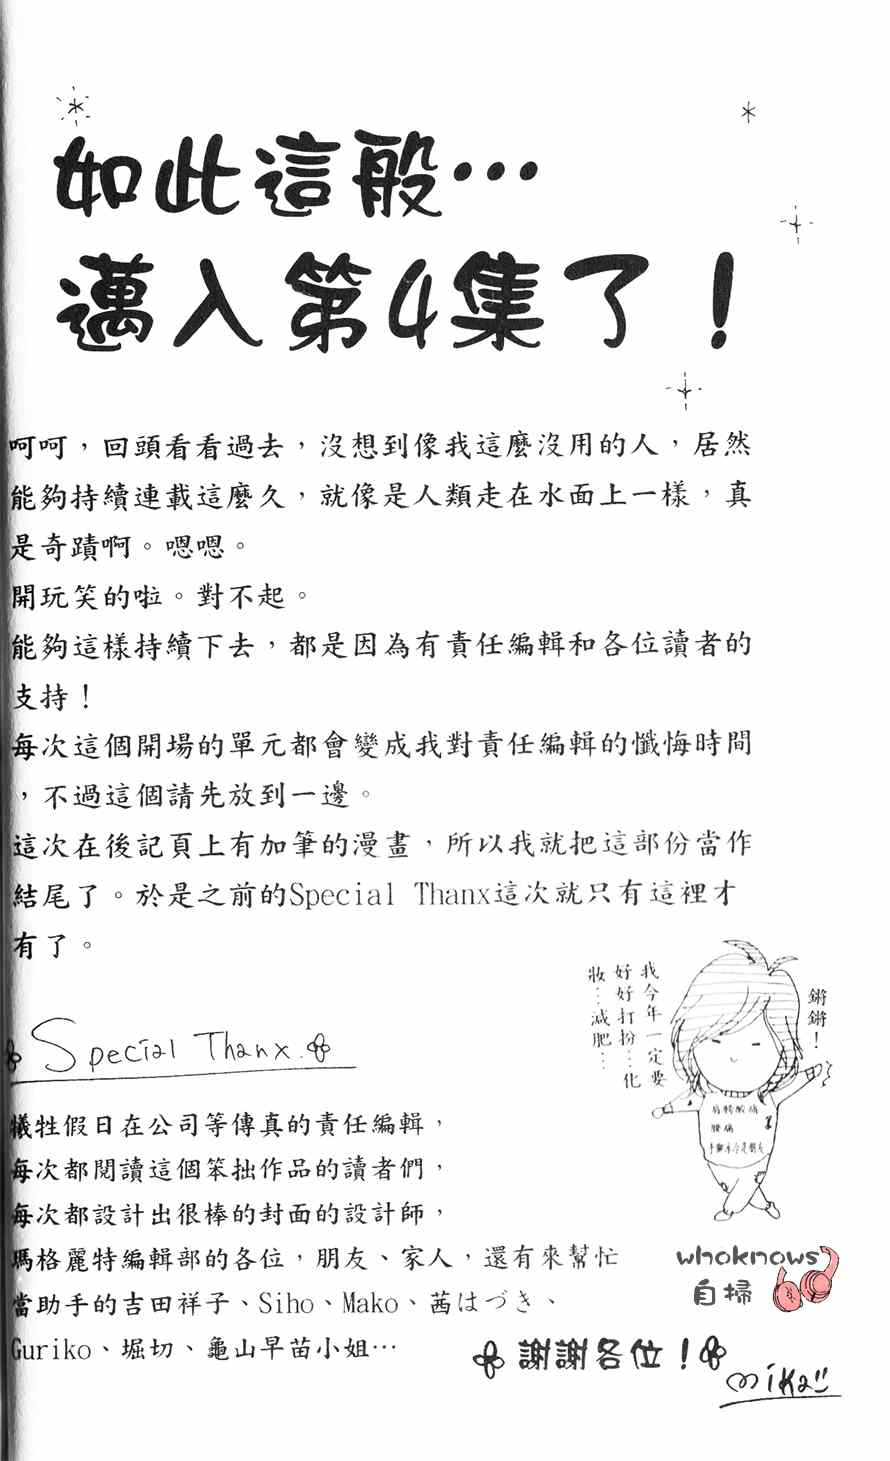 如此這般…
邁入第4集了！
呵呵，回頭看看過去，沒想到像我這麼沒用的人，居然
能夠持續連載這麼久，就像是人類走在水面上一樣，真
是奇蹟啊。嗯嗯。
開玩笑的啦。對不起。
能夠這樣持續下去，都是因為有責任編輯和各位讀者的
支持！
每次這個開場的單元都會變成我對責任編輯的懺悔時間
，不過這個請先放到一邊。
這次在後記頁上有加筆的漫畫，所以我就把這部份當作
結尾了。於是之前的Special Thanx這次就只有這裡才
有了。
鏘鏘！
我今年一定要
好好打扮…化
妝…減肥…
肩膀酸痛
腰痛
手腳冰冷是朋友
Special Thanx.
犧牲假日在公司等傳真的責任編輯，
每次都閱讀這個笨拙作品的讀者們，
每次都設計出很棒的封面的設計師，
瑪格麗特編輯部的各位，朋友、家人，還有來幫忙
當助手的吉田祥子、Siho、Mako、茜はづき、
Guriko、堀切、龜山早苗小姐…
whoknows
自掃
謝謝各位！
mika